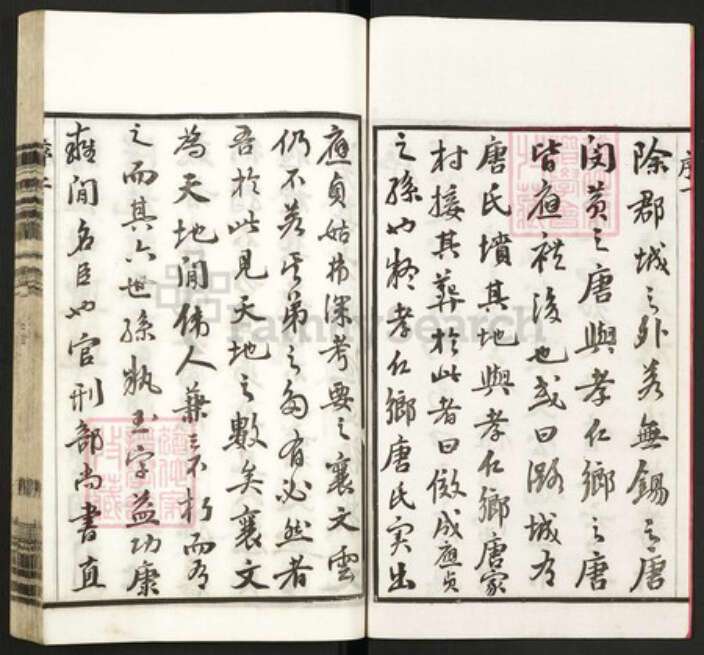 序一
除郡城之外若無錫之唐
閔黃之唐與孝仁鄉之唐
皆應祺後也或曰潞城有
唐氏墳其地與孝仁鄉唐家
村接其葬於此者曰俶成應貞
之孫也然孝仁鄉唐氏实出
應貞姑弗深考要之襄文雲
仍不若其弟之多有必然者
吾於此見天地之數矣襄文
為天地間偉人兼三不朽而有
之而其六世孫執玉字益功康
雍間名臣也官刑部尚書直
序二
FamilySearch